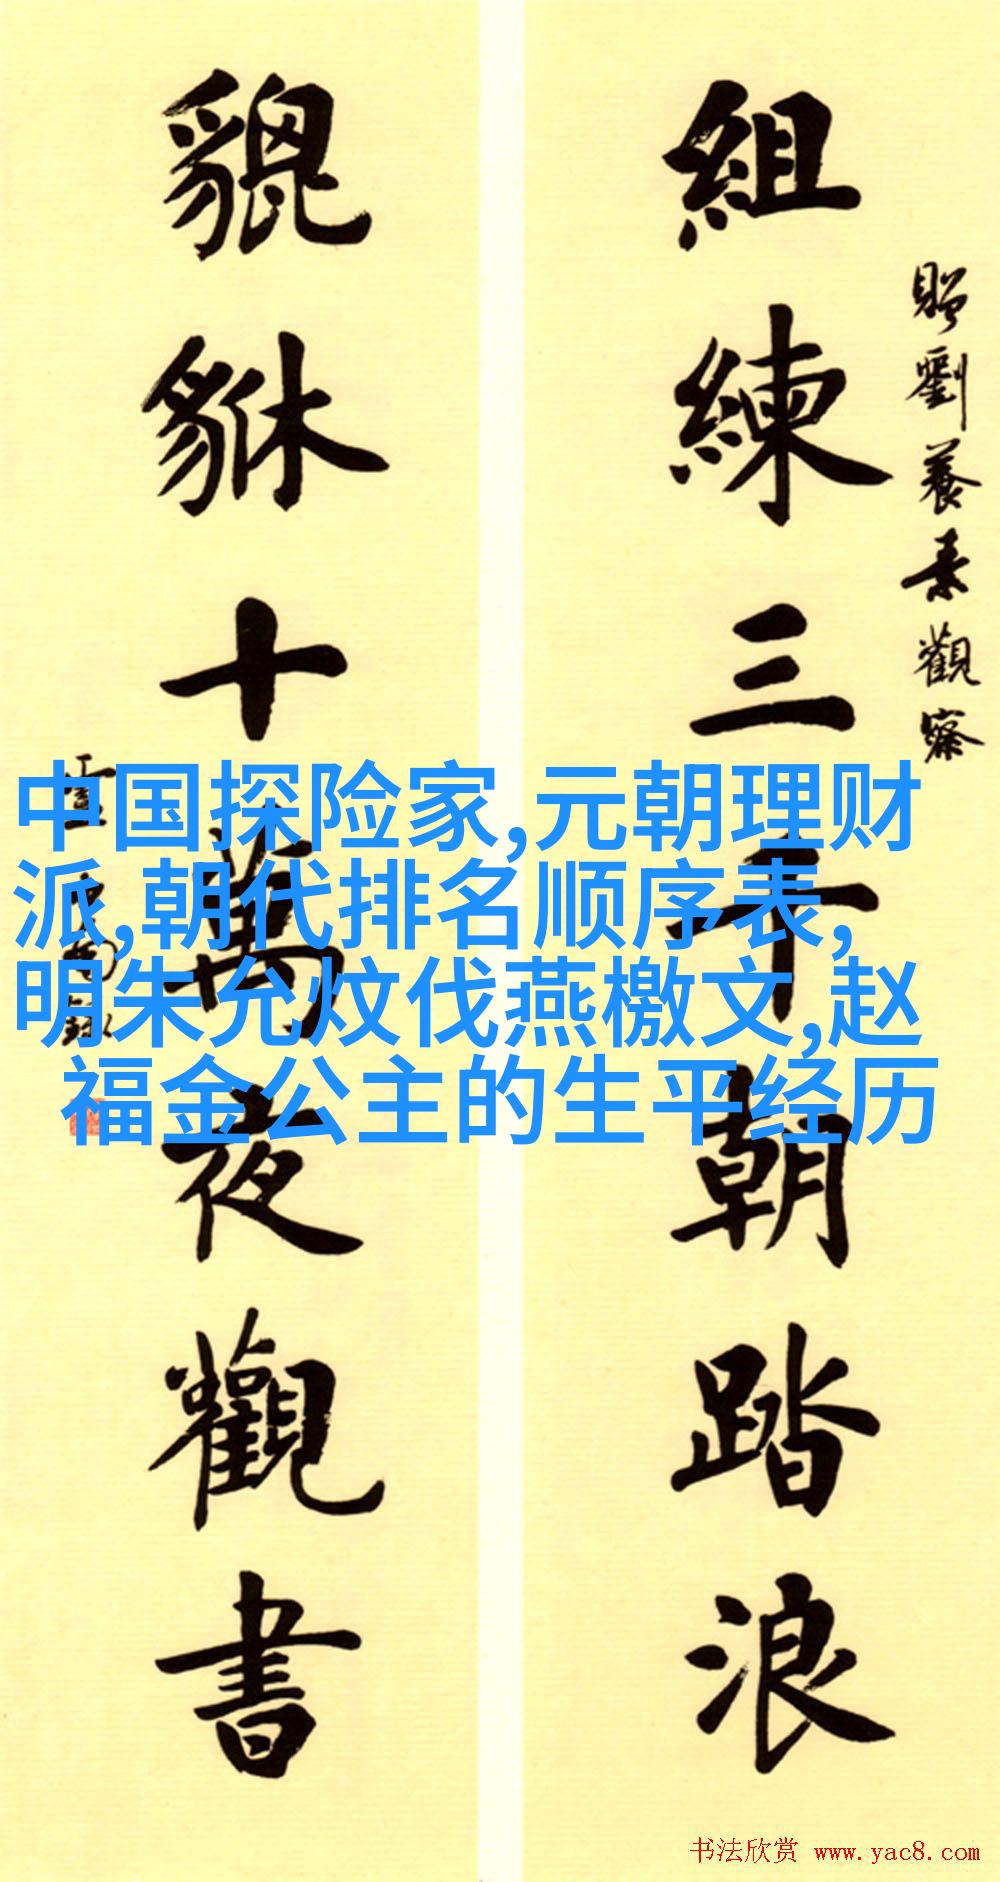 組練三千朝踏浪
貔貅十萬夜觀書
贈劉養素觀察
中国探险家,元朝理财
派,朝代排名顺序表,
明朱允炆伐燕檄文,赵
福金公主的生平经历
书法欣赏 www.yac8.com